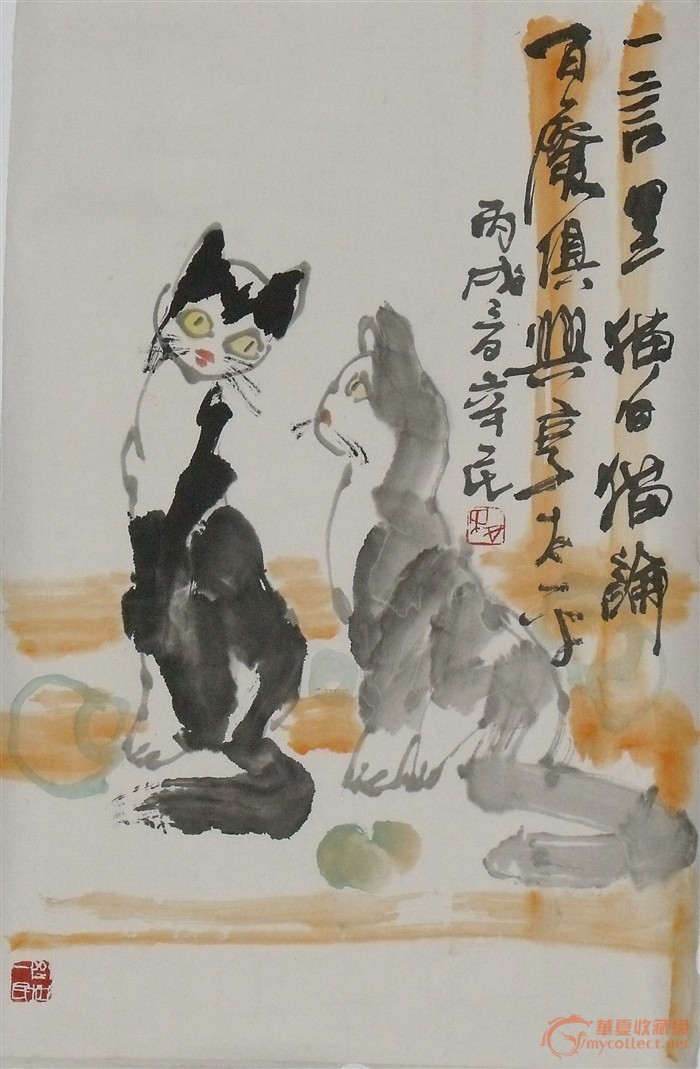 一言黑猫白猫論
百廢俱興享太平
丙戌辛民
華夏收藏網
mycollect.net